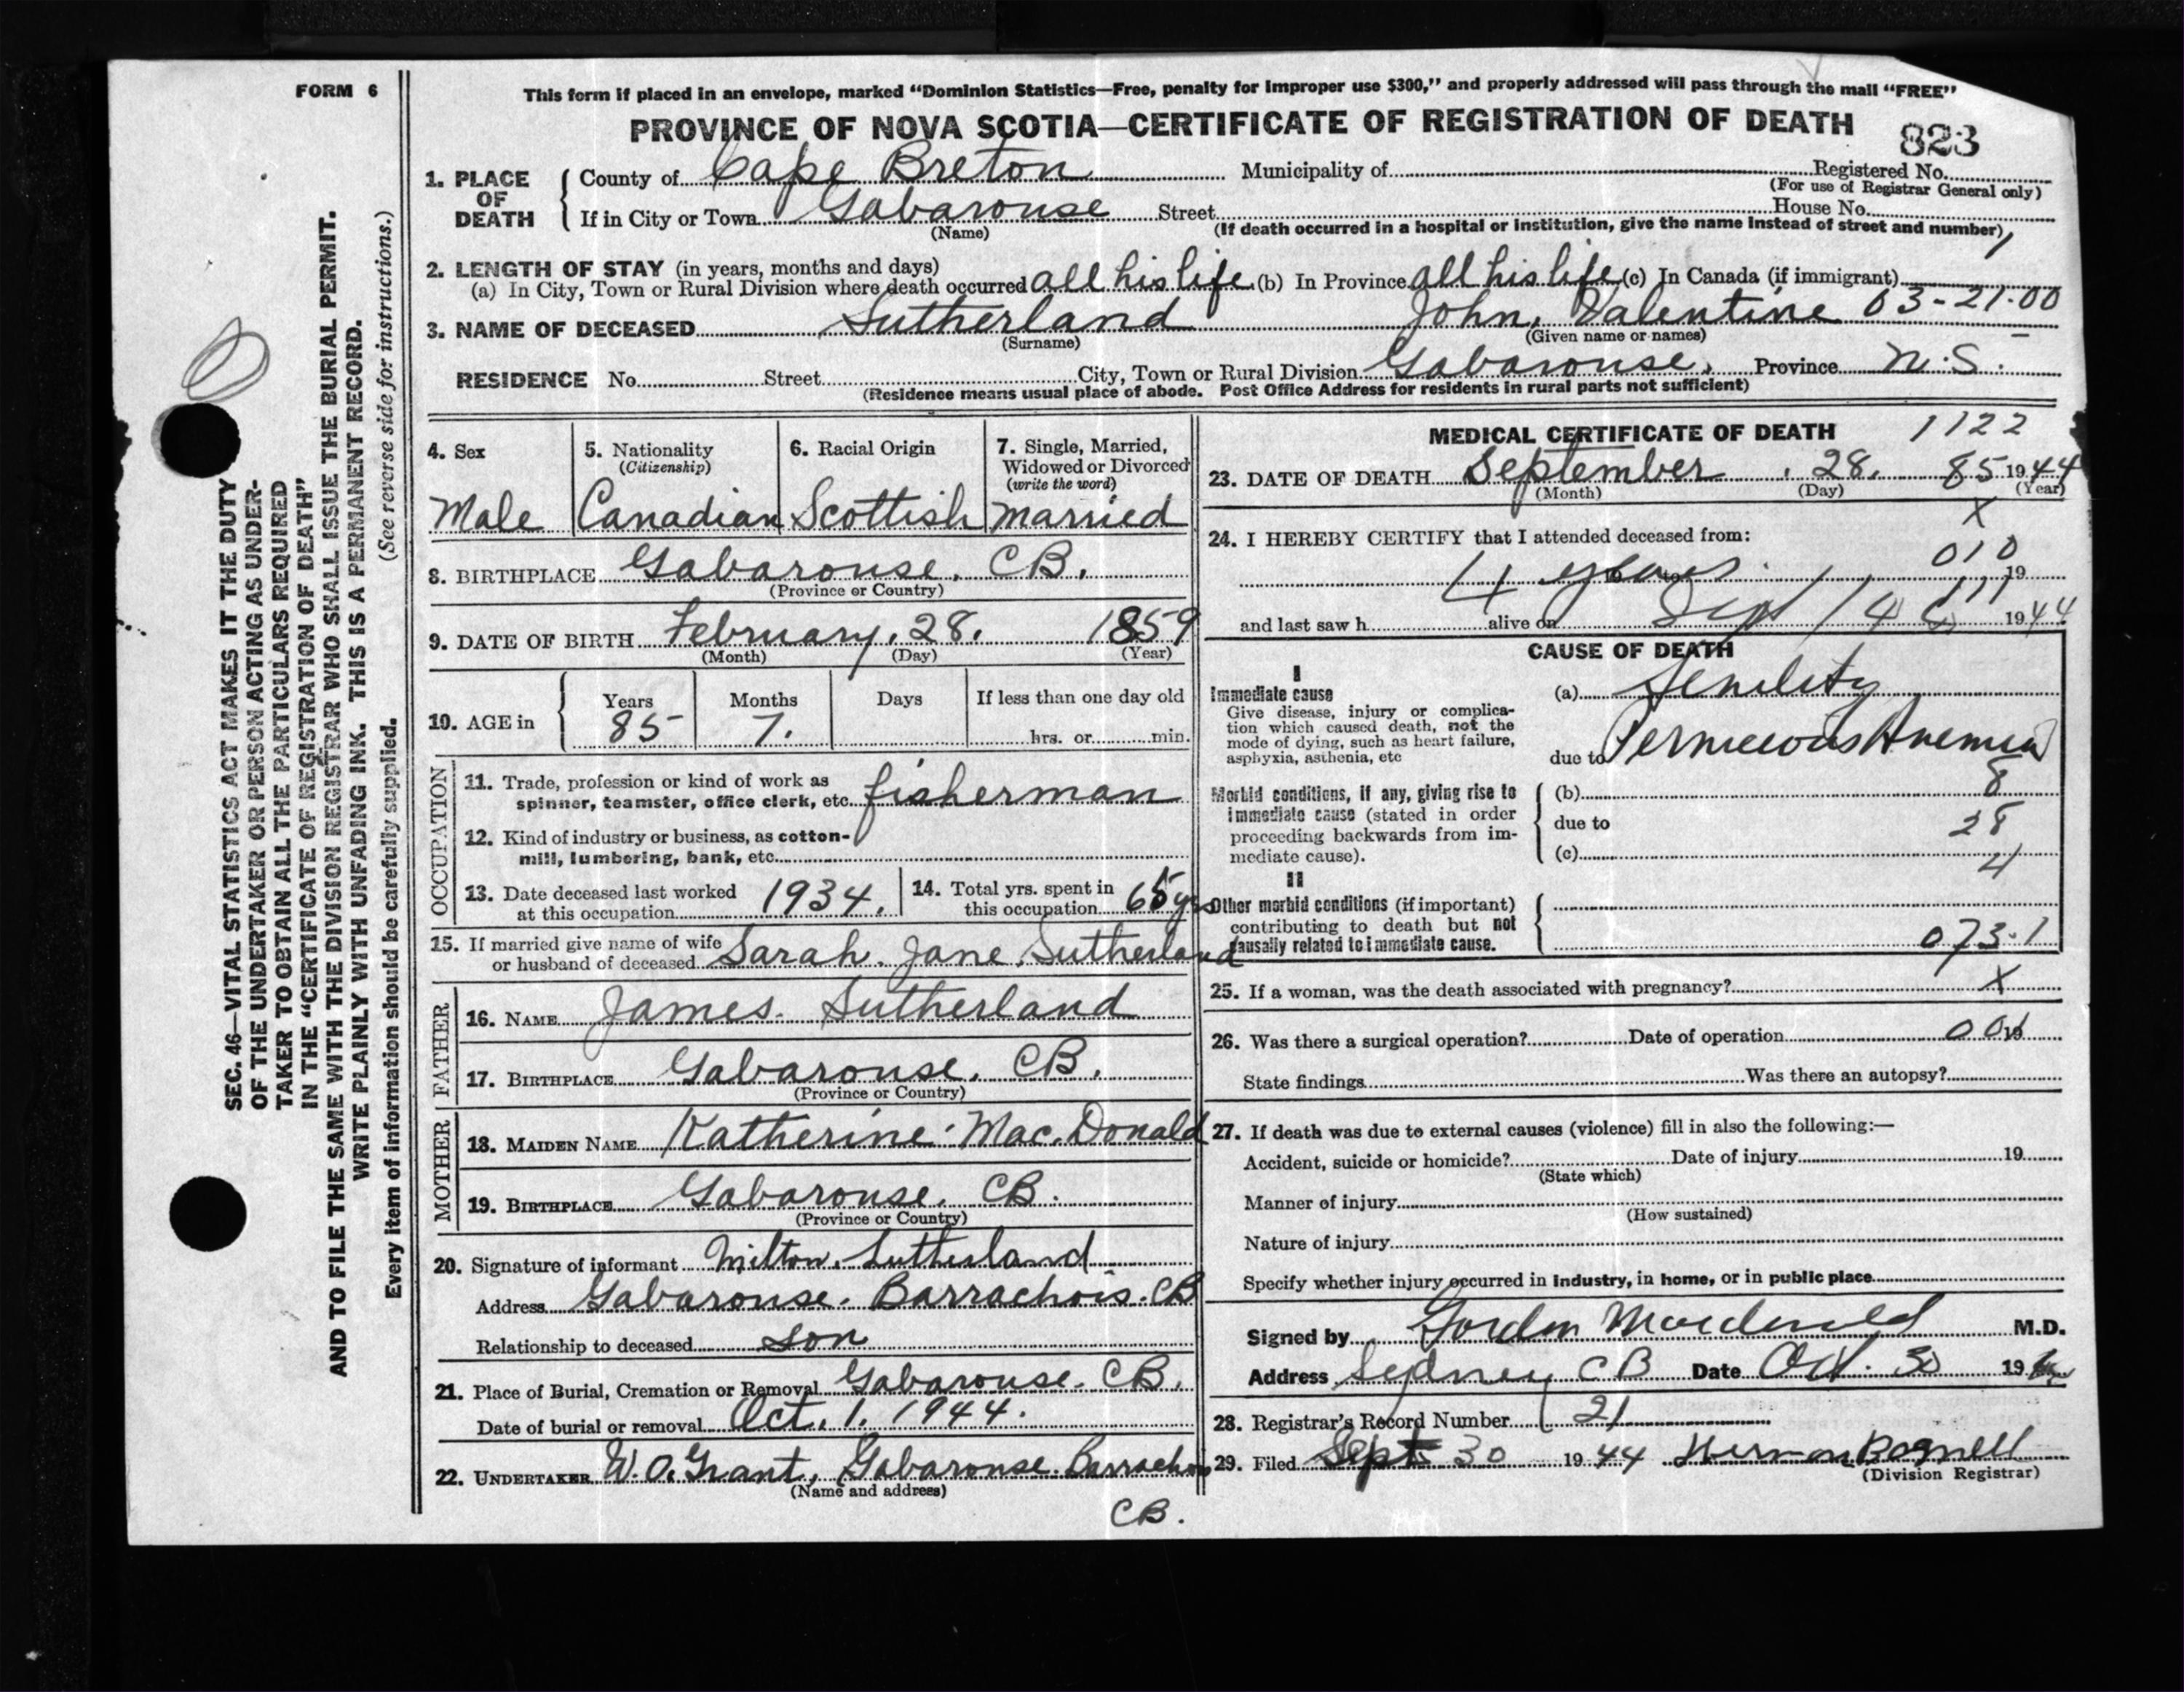 FORM 6
This form if placed in an envelope, marked “Dominion Statistics—Free, penalty for improper use $300,” and properly addressed will pass through the mail “FREE”
PROVINCE OF NOVA SCOTIA—CERTIFICATE OF REGISTRATION OF DEATH
823
1. PLACE OF DEATH
County of Cape Breton Municipality of Registered No.
(For use of Registrar General only)
If in City or Town Gabarouse Street House No.
(Name) (If death occurred in a hospital or institution, give the name instead of street and number)
2. LENGTH OF STAY (in years, months and days)
(a) In City, Town or Rural Division where death occurred all his life (b) In Province all his life (c) In Canada (if immigrant)
3. NAME OF DECEASED Sutherland John, Valentine 03-21-00
(Surname) (Given name or names)
RESIDENCE No. Street City, Town or Rural Division Gabarouse, Province N.S.
(Residence means usual place of abode. Post Office Address for residents in rural parts not sufficient)
4. Sex
Male
5. Nationality
(Citizenship)
Canadian
6. Racial Origin
Scottish
7. Single, Married,
Widowed or Divorced
(write the word)
married
8. BIRTHPLACE Gabarouse. CB.
(Province or Country)
9. DATE OF BIRTH February. 28. 1859
(Month) (Day) (Year)
10. AGE in
Years Months Days If less than one day old
85 7. hrs. or min.
OCCUPATION
11. Trade, profession or kind of work as
spinner, teamster, office clerk, etc. fisherman
12. Kind of industry or business, as cotton-
mill, lumbering, bank, etc.
13. Date deceased last worked
at this occupation 1934.
14. Total yrs. spent in
this occupation 65 yrs
15. If married give name of wife
or husband of deceased Sarah. Jane. Sutherland
FATHER
16. NAME James. Sutherland
17. BIRTHPLACE Gabarouse. CB.
(Province or Country)
MOTHER
18. MAIDEN NAME Katherine. Mac.Donald
19. BIRTHPLACE Gabarouse. CB.
(Province or Country)
20. Signature of informant Milton. Sutherland
Address Gabarouse. Barrachois. CB
Relationship to deceased son
21. Place of Burial, Cremation or Removal Gabarouse. CB.
Date of burial or removal Oct. 1. 1944.
22. UNDERTAKER W.O. Grant, Gabarouse. Barrachois
(Name and address)
CB.
MEDICAL CERTIFICATE OF DEATH 1122
23. DATE OF DEATH September. 28. 85 1944
(Month) (Day) (Year)
X
24. I HEREBY CERTIFY that I attended deceased from:
010
4 years. to 19
111
and last saw h alive on Sept 14 1944
CAUSE OF DEATH
I
Immediate cause
Give disease, injury or complica-
tion which caused death, not the
mode of dying, such as heart failure,
asphyxia, asthenia, etc
(a) Senility
due to Pernicious Anemia
Morbid conditions, if any, giving rise to
immediate cause (stated in order
proceeding backwards from im-
mediate cause).
(b) 8
due to 28
(c) 4
II
Other morbid conditions (if important)
contributing to death but not
causally related to immediate cause.
073.1
25. If a woman, was the death associated with pregnancy? X
26. Was there a surgical operation? Date of operation 19
State findings Was there an autopsy?
27. If death was due to external causes (violence) fill in also the following:—
Accident, suicide or homicide? Date of injury 19
(State which)
Manner of injury
(How sustained)
Nature of injury
Specify whether injury occurred in industry, in home, or in public place
Signed by Gordon Macdonald M.D.
Address Sydney CB Date Oct. 30 19
28. Registrar's Record Number 21
29. Filed Sept 30 1944 Bagnell
(Division Registrar)
SEC. 46—VITAL STATISTICS ACT MAKES IT THE DUTY
OF THE UNDERTAKER OR PERSON ACTING AS UNDER-
TAKER TO OBTAIN ALL THE PARTICULARS REQUIRED
IN THE “CERTIFICATE OF REGISTRATION OF DEATH”
AND TO FILE THE SAME WITH THE DIVISION REGISTRAR WHO SHALL ISSUE THE BURIAL PERMIT.
WRITE PLAINLY WITH UNFADING INK. THIS IS A PERMANENT RECORD.
Every item of information should be carefully supplied. (See reverse side for instructions.)